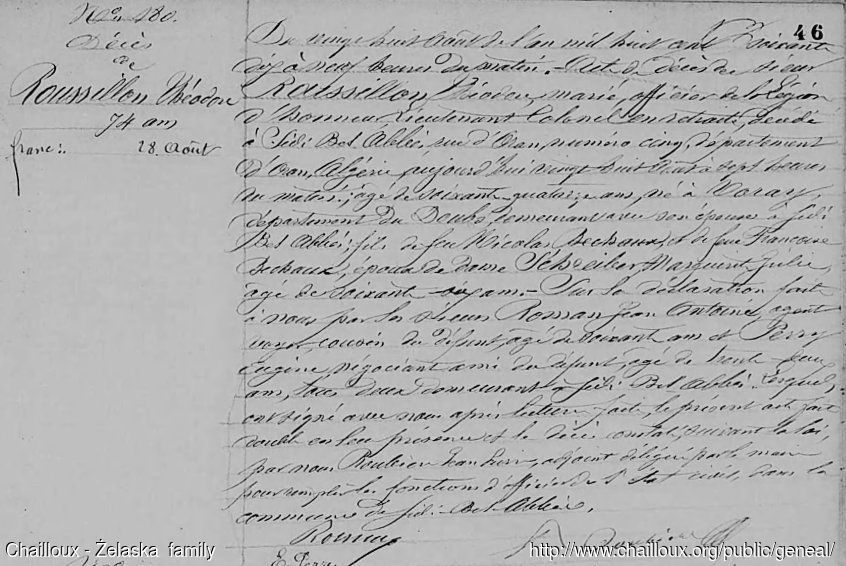 No 180.
Décès
de
Roussillon Théodore
74 ans
franc: 28. Août
46
Du vingt huit Août de l'an mil huit cent soixante
dix à neuf heures du matin. Acte de décès de sieur
Roussillon, Théodore, marié, officier de la Légion
d'honneur, Lieutenant Colonel en retraite, décédé
à Sidi Bel Abbès, rue d'Oran, numéro cinq, département
d'Oran, Algérie, aujourd'hui vingt huit Août à sept heures
du matin, âgé de soixante quatorze ans, né à Voray,
département du Doubs, demeurant avec son épouse à Sidi
Bel Abbès; fils de feu Nicolas, et de feue Françoise
Bechaux, époux de Dame Schreiber, Marguerite Julie,
âgée de soixante ans. Sur la déclaration faite
à nous par les sieurs Roman Jean Antoine, agent
voyer, cousin du défunt, âgé de soixante ans et Perry
Eugène, négociant, ami du défunt, âgé de trente
ans, tous deux demeurant à Sidi Bel Abbès. Lesquels
ont signé avec nous après lecture faite, le présent acte fait
double en leur présence et le décès constaté, suivant la loi,
par nous Jean adjoint délégué par le maire
pour remplir les fonctions d'officier de l'État civil, dans la
commune de Sidi Bel Abbès.
Roman
E. Perry
Chailloux - Želaska family
http://www.chailloux.org/public/geneal/